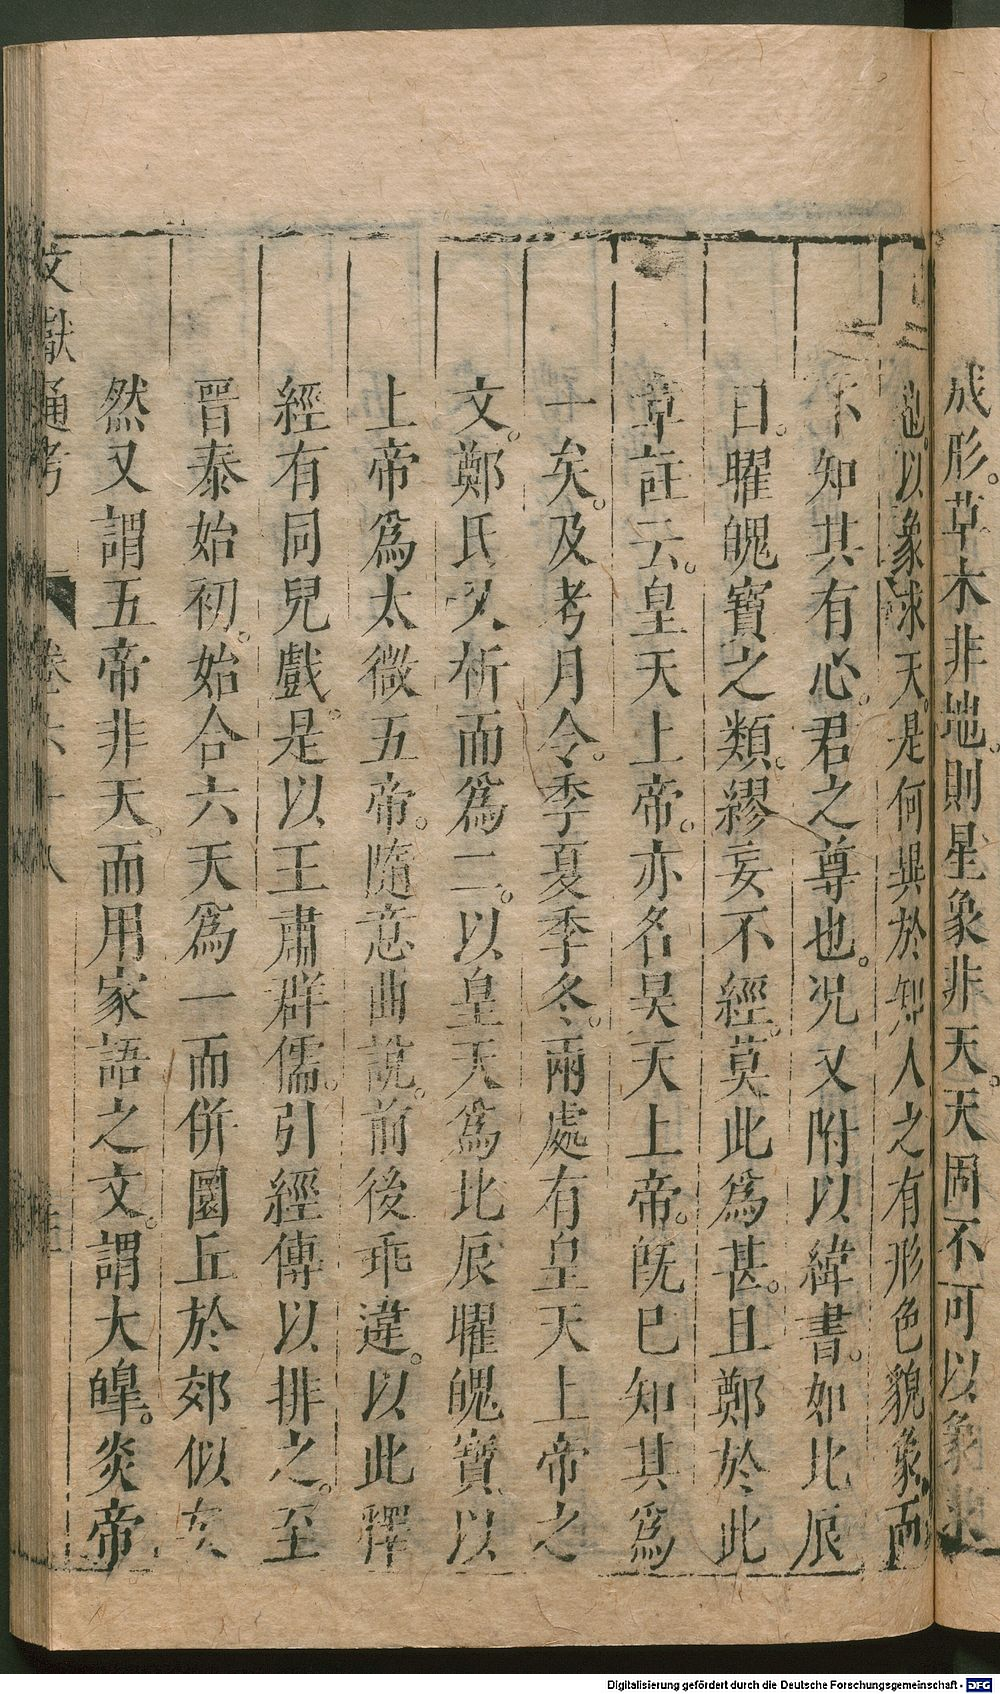 成形。草木非地。則星象非天。天固不可以象求
也。以象求天。是何異於知人之有形色貌象而
不知其有心。君之尊也。况又附以緯書。如北辰
曰。曜魄寶之類。繆妄不經。莫此爲甚。且鄭於此
章註云。皇天上帝。亦名昊天上帝。旣已知其爲
一矣。及考月令。季夏季冬。兩處有皇天上帝之
文。鄭氏又析而爲二。以皇天爲北辰曜魄寶以
上帝爲太微五帝。隨意曲說。前後乖違。以此釋
經有同兒戲。是以王肅群儒。引經傳以排之。至
晉泰始初。始合六天爲一而併圜丘於郊似矣
然又謂五帝非天。而用家語之文。謂大皥。炎帝
文獻通考 卷六十八
Digitalisierung gefördert durch die Deutsche Forschungsgemeinschaft - DFG